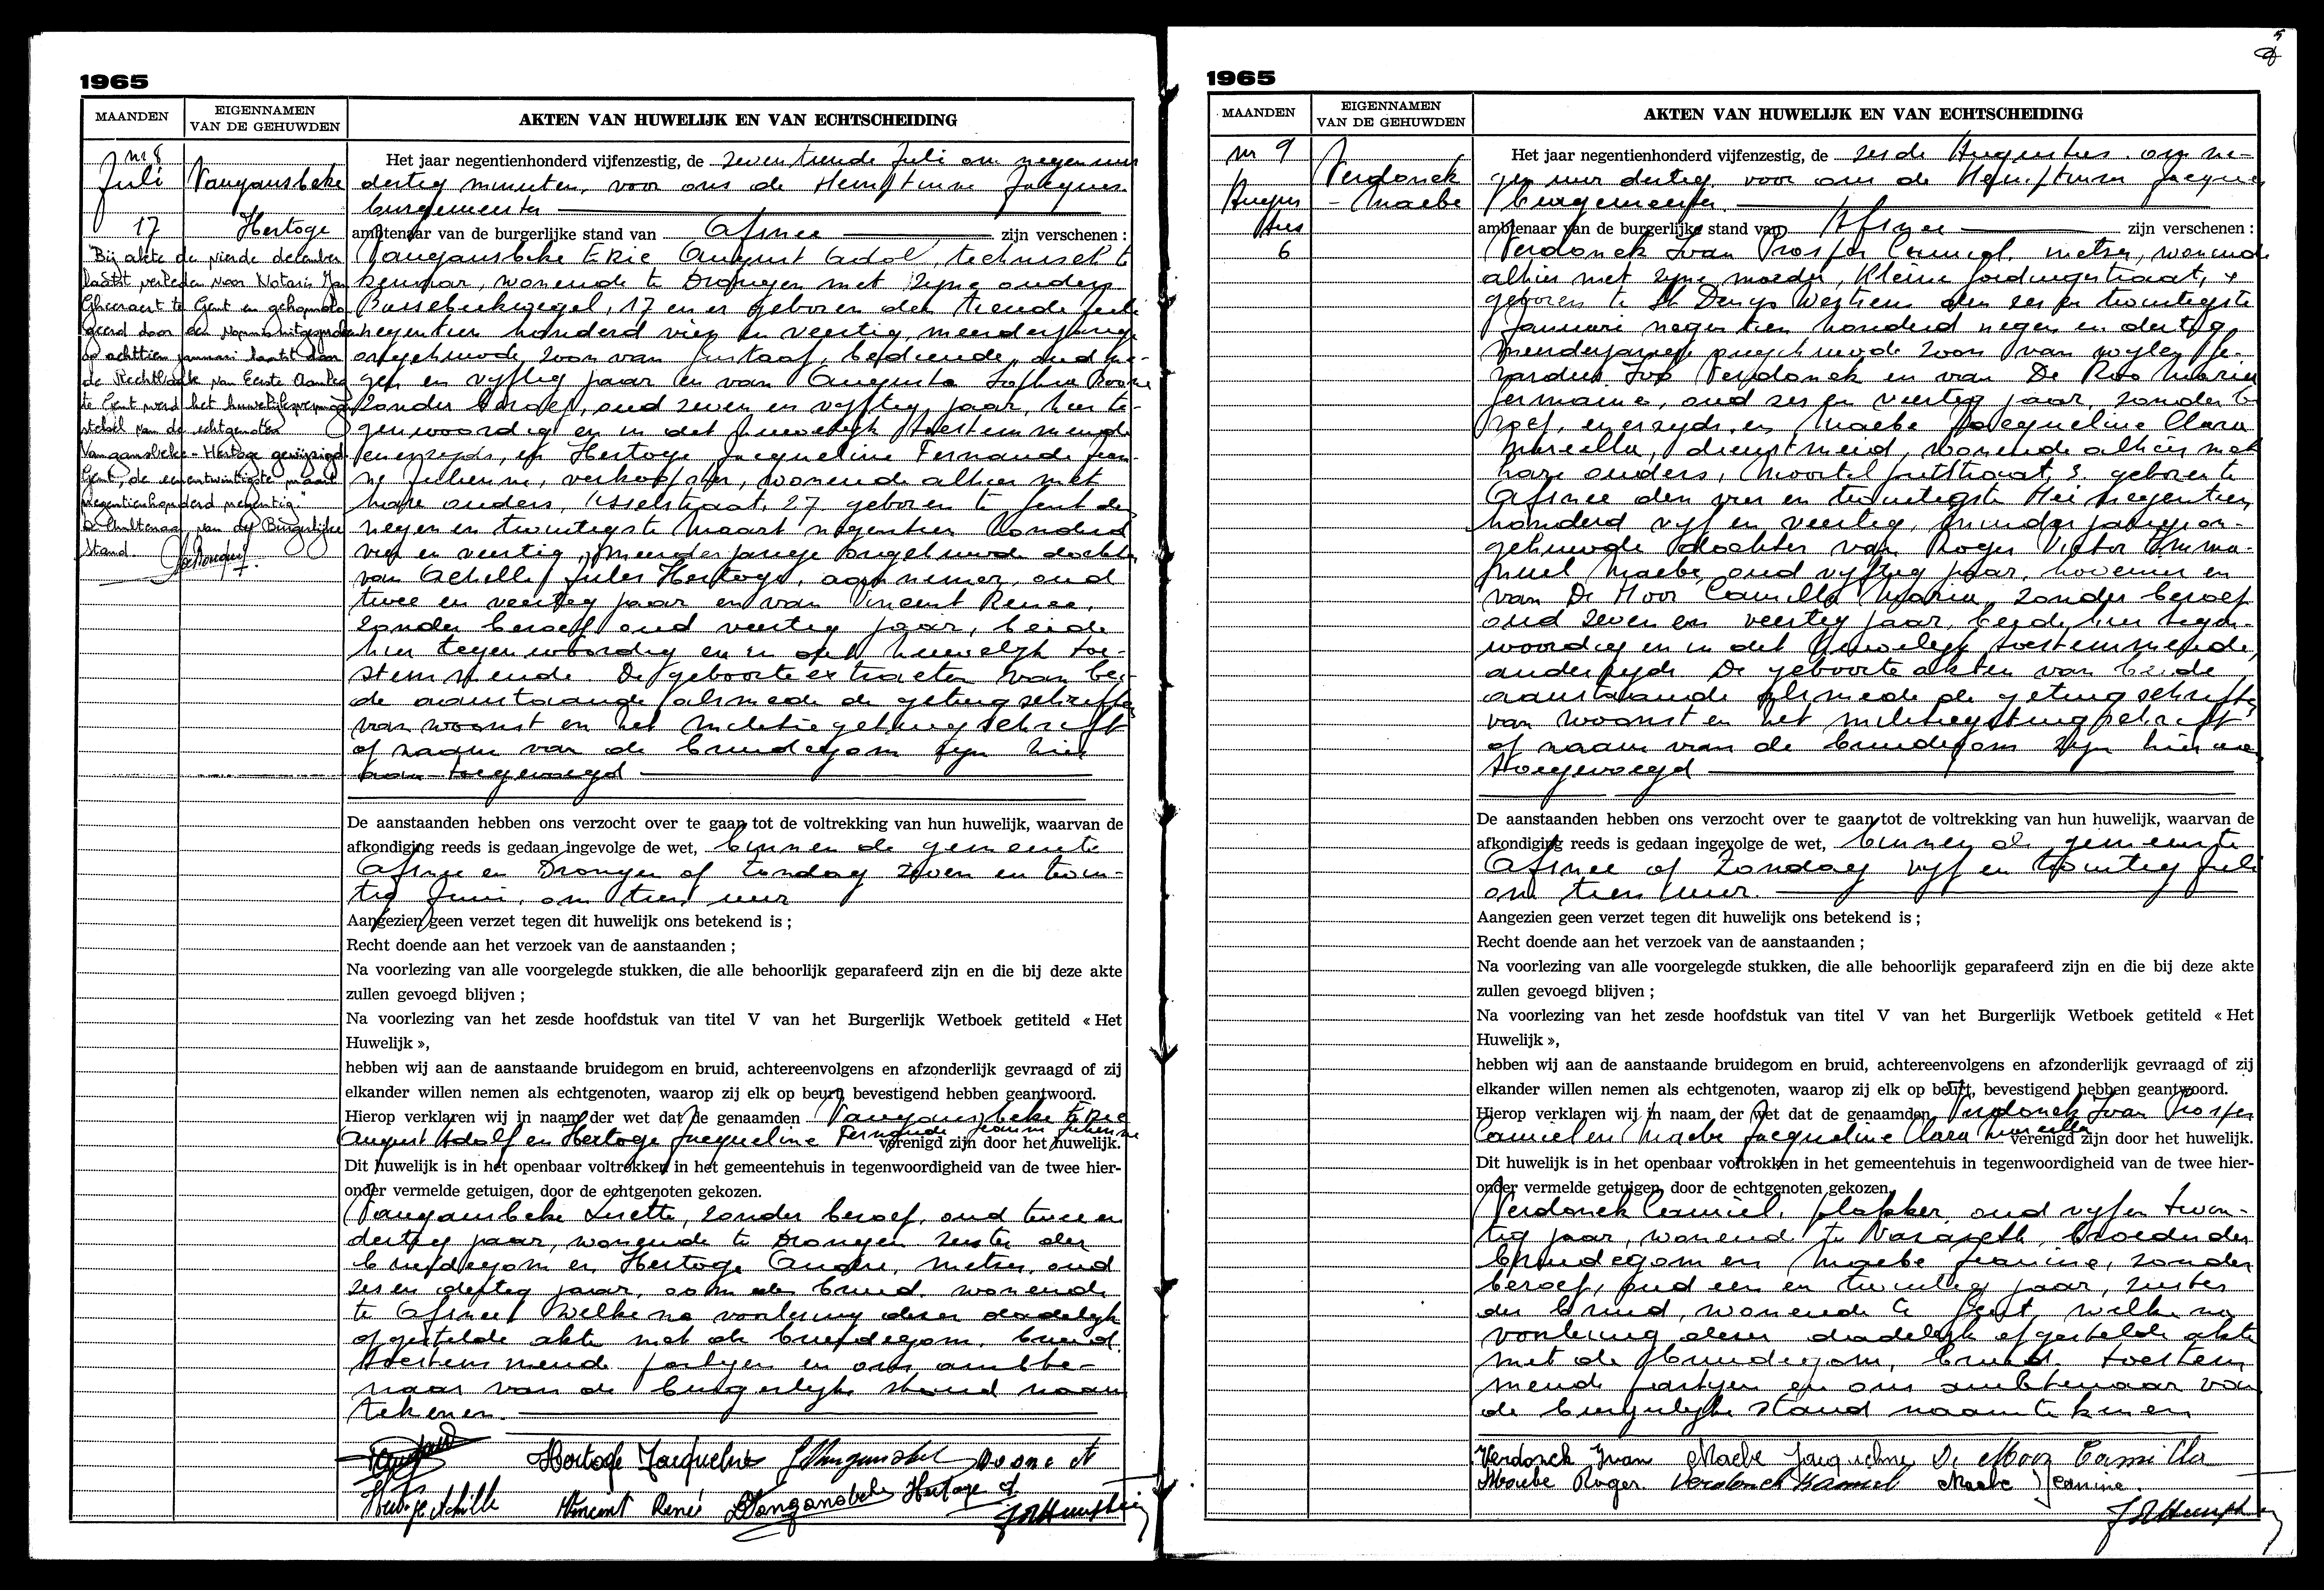 1965
MAANDEN
EIGENNAMEN
VAN DE GEHUWDEN
AKTEN VAN HUWELIJK EN VAN ECHTSCHEIDING
nr 8
Juli
17
Vangansbeke
Hertoge
"Bij akte de vierde december
laatst verleden voor Notaris
te Gent en gehomolo
geerd door een vonnis uitgesproken
op achttien januari laatst door
de Rechtbank van Eerste Aanleg
te Gent werd het huwelijksvermogen
stelsel van de echtgenoten
Vangansbeke - Hertoge gewijzigd
Gent, de eenentwintigste maart
negentienhonderd negentig."
De Ambtenaar van de Burgerlijke
Stand.
Het jaar negentienhonderd vijfenzestig, de zeventiende Juli om negen uur
dertig minuten, voor ons de Hemptinne Jacques
burgemeester
ambtenaar van de burgerlijke stand van Afsnee zijn verschenen :
Vangansbeke Eric August Adolf, technisch te
kenaar, wonende te Drongen met zijne ouders
17 en er geboren den tiende juli
negentien honderd vier en veertig, meerderjarige
ongehuwde zoon van Gustaaf, bediende, oud ne-
gen en vyftig jaar en van Augusta Sophie Boone
zonder beroep, oud zeven en vyftig jaar, hier te-
genwoordig en in det huwelijk toestemmende
enerzyds, en Hertoge Jacqueline Fernande Jean-
ne Julienne, verkoopster, wonende alhier met
hare ouders, Ysselstraat, 27 geboren te Gent den
negen en twintigste Maart negentien honderd
vier en veertig, meerderjarige ongehuwde dochter
van Achille Jules Hertoge, aannemer, oud
twee en veertig jaar en van Vincent Renée,
zonder beroep oud veertig jaar, beide
hier tegenwoordig en in det huwelyk toe-
stemmende. De geboorte extracten van bei-
de aanstaande alsmede de getuigschriften
van woonst en het militiegetuigschrift
op naam van de bruidegom zyn hier
aan toegevoegd
De aanstaanden hebben ons verzocht over te gaan tot de voltrekking van hun huwelijk, waarvan de
afkondiging reeds is gedaan ingevolge de wet, binnen de gemeente
Afsnee en Drongen op zondag zeven en twin-
tig Juni, om tien uur
Aangezien geen verzet tegen dit huwelijk ons betekend is ;
Recht doende aan het verzoek van de aanstaanden ;
Na voorlezing van alle voorgelegde stukken, die alle behoorlijk geparafeerd zijn en die bij deze akte
zullen gevoegd blijven ;
Na voorlezing van het zesde hoofdstuk van titel V van het Burgerlijk Wetboek getiteld « Het
Huwelijk »,
hebben wij aan de aanstaande bruidegom en bruid, achtereenvolgens en afzonderlijk gevraagd of zij
elkander willen nemen als echtgenoten, waarop zij elk op beurt, bevestigend hebben geantwoord.
Hierop verklaren wij in naam der wet dat de genaamden Vangansbeke Eric
August Adolf en Hertoge Jacqueline Fernande Jeanne Julienne verenigd zijn door het huwelijk.
Dit huwelijk is in het openbaar voltrokken in het gemeentehuis in tegenwoordigheid van de twee hier-
onder vermelde getuigen, door de echtgenoten gekozen.
Vangansbeke Lisette, zonder beroep, oud twee en
dertig jaar, wonende te Drongen zuster der
bruidegom en Hertoge André, metser, oud
zes en dertig jaar, oom der bruid, wonende
te Afsnee welke na voorlezing dezer dadelyk
opgestelde akte met de bruidegom, bruid
toestemmende partyen en ons ambte-
naar van de burgerlyke stand naam
tekenen.
Hertoge Jacqueline
Hertoge Achille Vincent Renée Vangansbeke Hertoge A
1965
MAANDEN
EIGENNAMEN
VAN DE GEHUWDEN
AKTEN VAN HUWELIJK EN VAN ECHTSCHEIDING
nr 9
Augus
tus
6
Verdonck
- Maebe
Het jaar negentienhonderd vijfenzestig, de zesde Augustus om ne-
gen uur dertig voor ons de Hemptinne Jacques
burgemeester
ambtenaar van de burgerlijke stand van Afsnee zijn verschenen :
Verdonck Ivan Prosper Camiel, metser, wonende
alhier met zyne moeder, Kleine Gordingestraat,
geboren te St Denys Westrem den zes en twintigste
Januari negentien honderd negen en dertig,
meerderjarige ongehuwde zoon van wylen
Verdonck en van De Roo Maria
Germaine, oud zes en veertig jaar, zonder be
roep, enerzyds, en Maebe Jacqueline Clara
Marcella, dienstmeid, wonende alhier met
hare ouders, Mortelputstraat, 3, geboren te
Afsnee den vier en twintigste Mei negentien
honderd vyf en veertig, minderjarige on-
gehuwde dochter van Roger Victor Emma-
nuel Maebe, oud vyftig jaar, hovenier en
van De Moor Camilla Maria, zonder beroep
oud zeven en veertig jaar, beide hier tegen-
woordig en in det huwelyk toestemmende,
anderzyds. De geboorte akten van beide
aanstaande alsmede de getuigschriften
van woonst en het militiegetuigschrift
op naam van de bruidegom zyn hier aan
toegevoegd
De aanstaanden hebben ons verzocht over te gaan tot de voltrekking van hun huwelijk, waarvan de
afkondiging reeds is gedaan ingevolge de wet, binnen de gemeente
Afsnee op Zondag vyf en twintig Juli
om tien uur.
Aangezien geen verzet tegen dit huwelijk ons betekend is ;
Recht doende aan het verzoek van de aanstaanden ;
Na voorlezing van alle voorgelegde stukken, die alle behoorlijk geparafeerd zijn en die bij deze akte
zullen gevoegd blijven ;
Na voorlezing van het zesde hoofdstuk van titel V van het Burgerlijk Wetboek getiteld « Het
Huwelijk »,
hebben wij aan de aanstaande bruidegom en bruid, achtereenvolgens en afzonderlijk gevraagd of zij
elkander willen nemen als echtgenoten, waarop zij elk op beurt, bevestigend hebben geantwoord.
Hierop verklaren wij in naam der wet dat de genaamden Verdonck Ivan Prosper
Camiel en Maebe Jacqueline Clara Marcella verenigd zijn door het huwelijk.
Dit huwelijk is in het openbaar voltrokken in het gemeentehuis in tegenwoordigheid van de twee hier-
onder vermelde getuigen, door de echtgenoten gekozen.
Verdonck Camiel, plakker, oud vyf en twin-
tig jaar, wonend te Nazareth, broeder der
bruidegom en Maebe Jeanine, zonder
beroep, oud een en twintig jaar, zuster
der bruid, wonende te Gent, welke na
voorlezing dezer dadelyk opgestelde akte
met de bruidegom, bruid, toestem
mende partyen en ons ambtenaar van
de burgerlyke stand naamtekenen
Verdonck Ivan Maebe Jacqueline De Moor Camilla
Maebe Roger Verdonck Kamiel Maebe Jeanine.